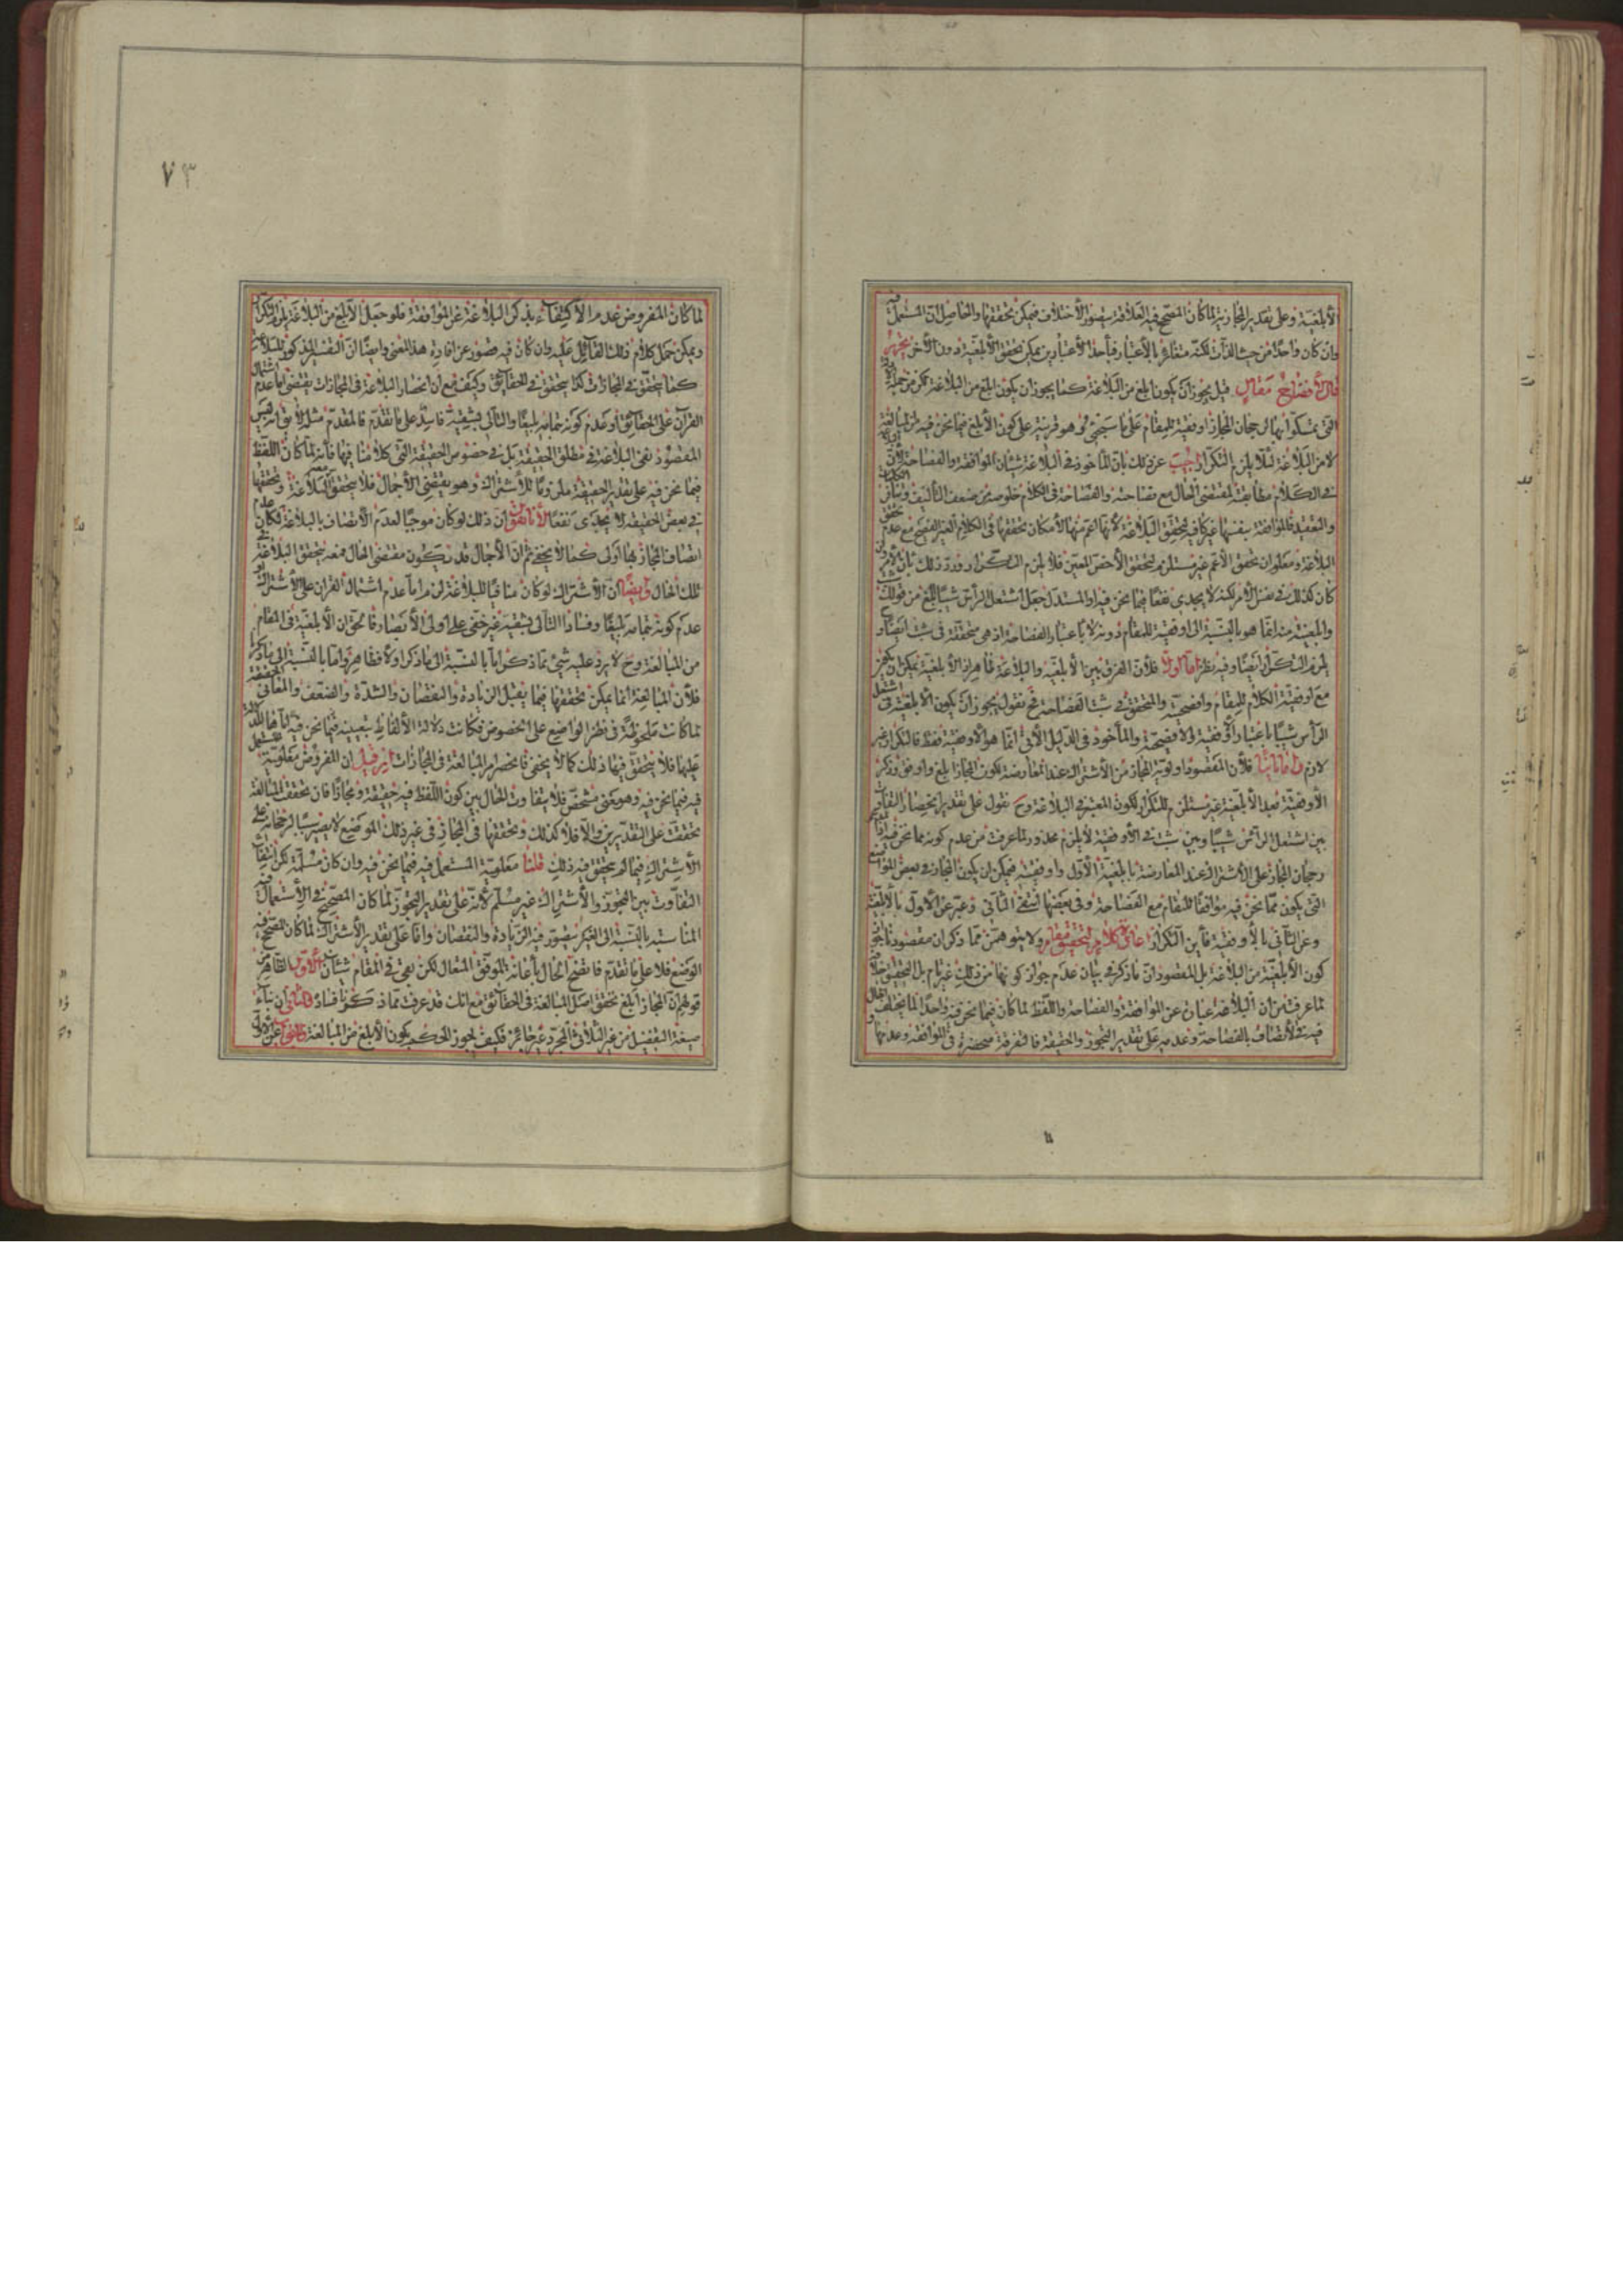 الأبلغية وعلى تقدير المجازية لما كان المصحح فيه العلاقة يتصور الأختلاف فيمكن تحققها والحاصل ان المستعمل فيه
وان كان واحدا من حيث الذات لكنه متغاير بالأعتبار فبأحد الأعتبارين يمكن تحقق الأبلغية دون الأخر
لأفضاح مقال قيل يجوز ان يكون ابلغ من البلاغة كما يجوز ان يكون ابلغ من البلاغة
التي تمسكوا بها لرجحان المجاز اوفقية للمقام على ما سيجئ وهو قرينة على كون الأبلغ فيما نحن فيه من المبالغة
لا من البلاغة لئلا يلزم التكرار اجيب عن ذلك بان المأخوذ في البلاغة شيئان الموافقة والفصاحة لأن البلاغة
في الكلام مطابقته لمقتضى الحال مع فصاحته والفصاحة في الكلام خلوصه من ضعف التأليف وتنافر الكلمات
والتعقيد فالموافقة بنفسها غير كافية لتحقق البلاغة لأنها اعم منها لأمكان تحققها في الكلام الغير الفصيح مع عدم تحقق
البلاغة ومعلوم ان تحقق الأعم غير مستلزم لتحقق الأخص المعين فلا يلزم التكرار ورد ذلك بان الأمر وان
كان كذلك في نفس الأمر لكنه لا يجدى نفعا فيما نحن فيه اذ المستدل جعل اشتعل الرأس شيبا ابلغ من قولك شبت
وابلغيته منه انما هو بالنسبة الى اوفقيته للمقام دونه لا باعتبار الفصاحة اذ هي متحققة في شبت ايضا فلو
يلزم التكرار ايضا وفيه نظر اما اولا فلأن الفرق بين الأبلغية والبلاغة ظاهر اذ الأبلغية يمكن ان يكون
مع اوفقية الكلام للمقام وافصحيته والمتحقق في شبت الفصاحة فح نقول يجوز ان يكون الأبلغية في اشتعل
الرأس شيبا باعتبار اوفقيته وافصحيته والمأخوذ في الدليل الأتي انما هو الأوفقية فقط فالتكرار غير
لازم واما ثانيا فلأن المقصود اولوية المجاز من الأشتراك عند المعارضة لكون المجاز ابلغ واوفق وذكر
الأوفقية بعد الأبلغية غير مستلزم للتكرار لكون المعتبر في البلاغة وح نقول على تقدير انحصار التفاوت
بين اشتعل الرأس شيبا وبين شبت في الأوفقية لا يلزم محذور لما عرفت من عدم كونه مما نحن فيه
رجحان المجاز على الأشتراك عند المعارضة بابلغية الأول واوفقيته فيمكن ان يكون المجاز في بعض المواضع
التي يكون مما نحن فيه موافقا للمقام مع الفصاحة وفي بعضها الثاني وعبر عن الأول بالأبلغية
وعن الثاني بالأوفقية فأين التكرار كلام لتحقيق مقام ولا يتوهمن مما ذكر ان مقصودنا
كون الأبلغية من البلاغة بل المقصود ان ما ذكر في بيان عدم جواز كونها من ذلك غير تام بل التحقيق خلافه
لما عرفت من ان البلاغة عبارة عن الموافقة والفصاحة واللفظ لما كان فيما نحن فيه واحدا لما يختلف الحال
فيه في الأتصاف بالفصاحة وعدمه على تقدير التجوز والحقيقة فالتفرقة منحصرة في الموافقة وعدمها
٧٣
لما كان المفروض عدم الأكتفاء بذكر البلاغة عن الموافقة فلو جعل الأبلغ من البلاغة يلزم التكرار
ويمكن حمل كلام ذلك القائل عليه وان كان فيه قصور عن افادة هذا المعنى وايضا ان التفسير المذكور للبلاغة
كما يتحقق في المجازات كذا يتحقق في الحقائق وكيف مع ان انحصار البلاغة في المجازات يقتضى اما عدم اشتمال
القرآن على الحقائق او عدم كونه بتمامه بليغا والتالى بشقيه فاسد على ما تقدم فالمقدم مثله لا يق انه ليس
المقصود نفي البلاغة في مطلق الحقيقة بل في خصوص الحقيقة التي كلامنا فيها فأنه لما كان اللفظ
فيما نحن فيه على تقدير الحقيقة ملزوما للأشتراك وهو يقتضى الأجمال فلا يتحقق البلاغة وتحققها
في بعض الحقيقة لا يجدى نفعا لأنا نقول ان ذلك لو كان موجبا لعدم الأتصاف بالبلاغة لكان عدم
اتصاف المجاز بها اولى كما لا يخفى ثم ان الأجمال قد يكون مقتضى الحال فمعه يتحقق البلاغة في
تلك الحال وايضا ان الأشتراك لو كان منافيا للبلاغة لزم اما عدم اشتمال القرآن على الأشتراك او
عدم كونه بتمامه بليغا وفساد التالى بشقيه غير خفى على اولى الأبصار فالحق ان الأبلغية في المقام
من المبالغة وح لا يرد عليه شئ مما ذكر اما بالنسبة الى ما ذكر اولا فظاهر واما بالنسبة الى ما ذكر
فلأن المبالغة انما يمكن تحققها فيما يقبل الزيادة والنقصان والشدة والضعف والمعانى الحقيقة
لما كانت ملحوظة في نظر الواضع على الخصوص فكانت دلالة الألفاظ بتعيينه فيما نحن فيه
عليها فلا يتحقق فيها ذلك كما لا يخفى فانحصر المبالغة في المجازات ان قيل ان المفروض معلومية المستعمل
فيه فيما نحن فيه وهو معنى مشخص فلا يتفاوت الحال بين كون اللفظ فيه حقيقة ومجازا فان تحققت المبالغة
تحققت على التقديرين والا فلا كذلك وتحققها في المجاز في غير ذلك الموضع لا يصير سببا لرجحانه على
الأشتراك فيما لم يتحقق فيه ذلك قلنا معلومية المستعمل فيه فيما نحن فيه وان كان مسلمة لكن انتفاء
التفاوت بين التجوز والأشتراك غير مسلم لأنه على تقدير التجوز لما كان المصحح في الأستعمال
المناسبة بالنسبة الى الغير يتصور فيه الزيادة والنقصان واما على تقدير الأشتراك لما كان المصحح فيه
الوضع فلا على ما تقدم فاتضح الحال بأعانة الموفق المتعال لكن بقى في المقام شيئان الأول الظاهر من
قولهم ان المجاز ابلغ تحقق اصل المبالغة في الحقائق مع انك قد عرفت مما ذكرنا فساده الثانى ان بناء
صيغة التفضيل من غير الثلاثى المجرد غير جائز فكيف يجوز الحكم بكون الأبلغ من المبالغة